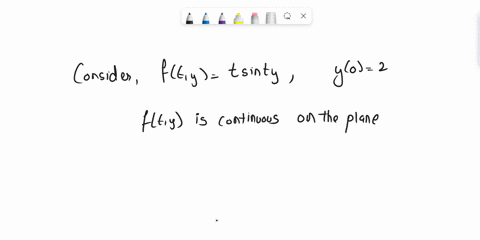 Consider, f(t,y) = t sin ty, y(0) = 2
f(t,y) is continuous on the plane